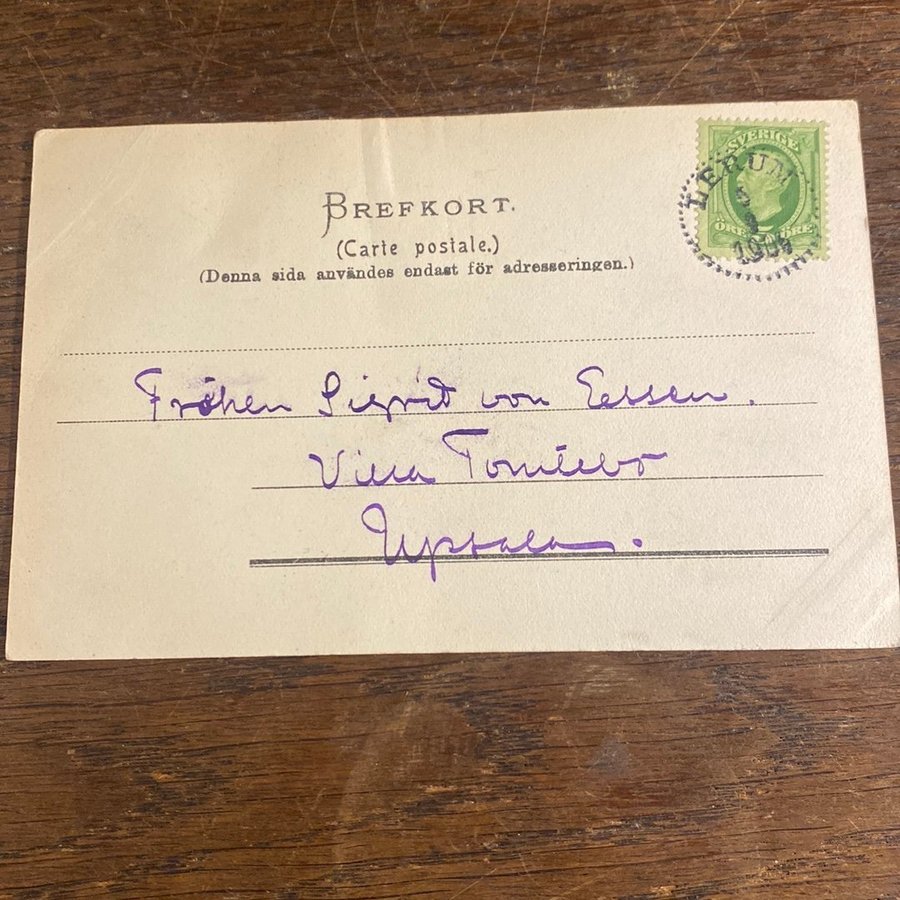 SVERIGE
ÖRE 5 ÖRE
LERUM
BREFKORT.
(Carte postale.)
(Denna sida användes endast för adresseringen.)
Fröken Sigrid von Essen.
Villa Tomtebo
Upsala.